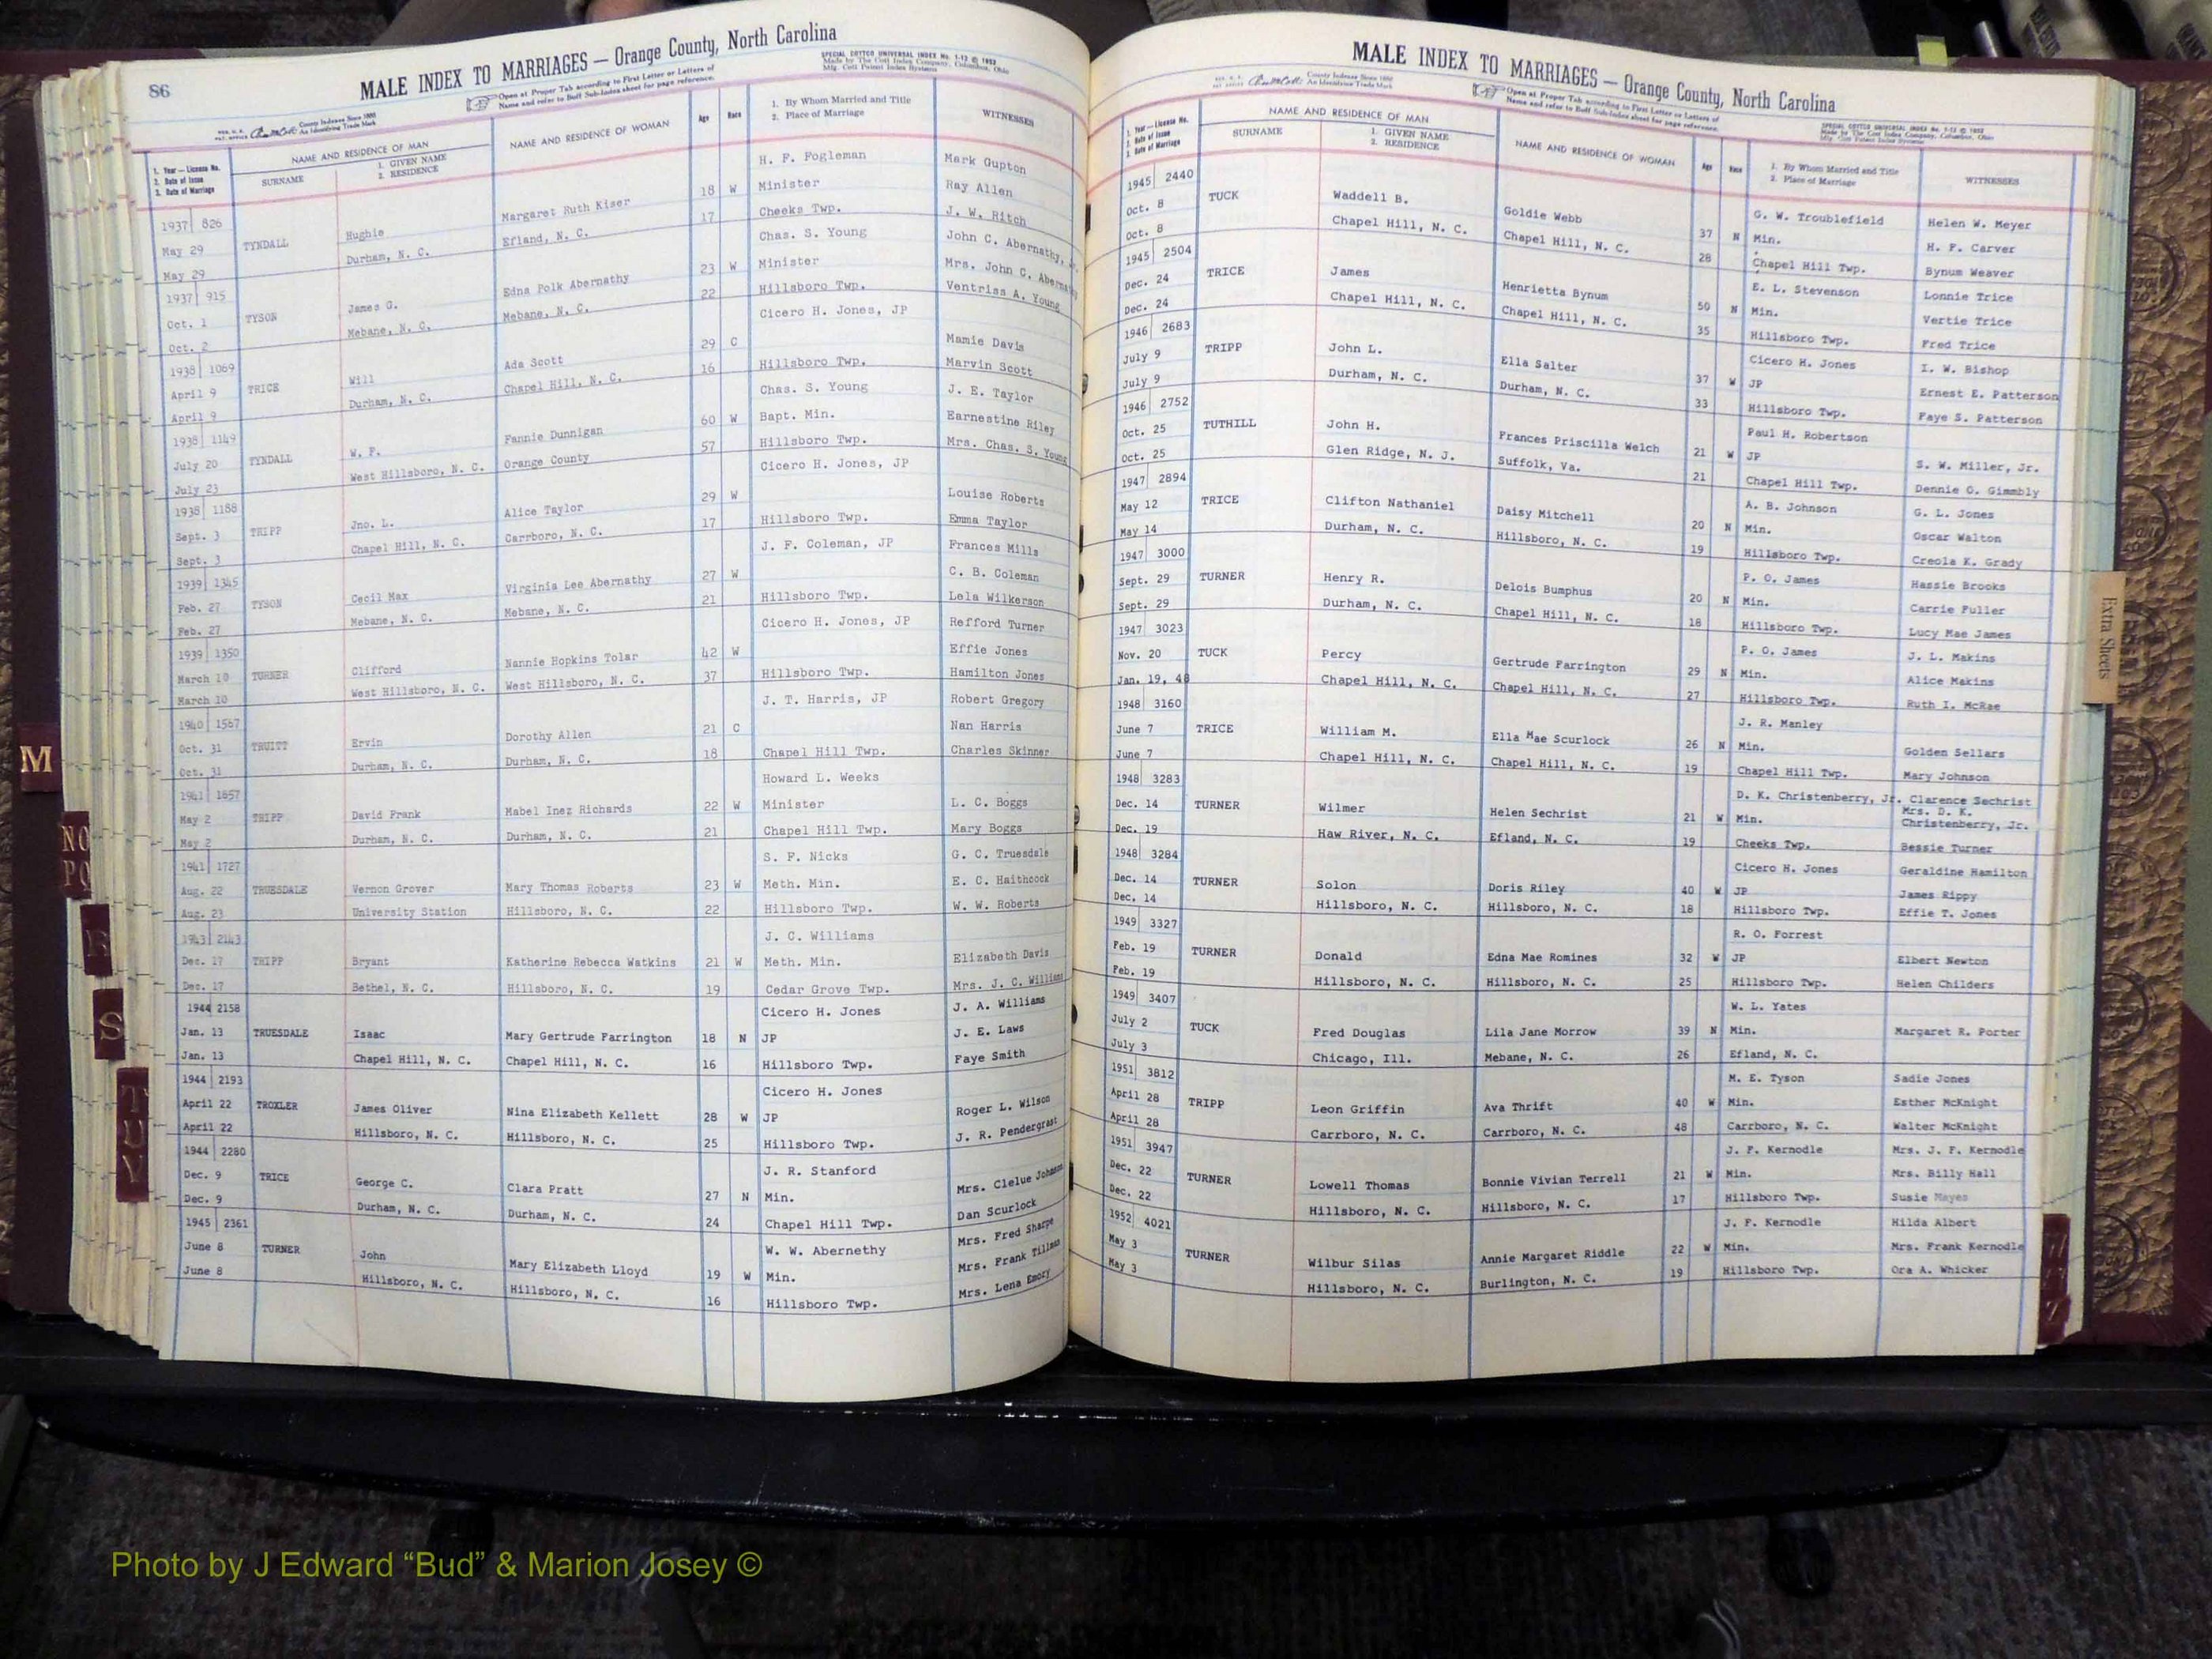 86
MALE INDEX TO MARRIAGES — Orange County, North Carolina
SPECIAL COTTCO UNIVERSAL INDEX No. 1-12 © 1952
Made by The Cott Index Company, Columbus, Ohio
Mfg. Cott Patent Index Systems
Open at Proper Tab according to First Letter or Letters of
Name and refer to Buff Sub-Index sheet for page reference.
County Indexes Since 1888
An Identifying Trade Mark
1. Year — License No.
2. Date of Issue
3. Date of Marriage
NAME AND RESIDENCE OF MAN
SURNAME
1. GIVEN NAME
2. RESIDENCE
NAME AND RESIDENCE OF WOMAN
Age
Race
1. By Whom Married and Title
2. Place of Marriage
WITNESSES
1937 826 H. F. Fogleman Mark Gupton
May 29 TYNDALL Hughie Margaret Ruth Kiser 18 W Minister Ray Allen
May 29 Durham, N. C. Efland, N. C. 17 Cheeks Twp. J. W. Ritch
1937 915 Chas. S. Young John C. Abernathy, Jr.
Oct. 1 TYSON James G. Edna Polk Abernathy 23 W Minister Mrs. John C. Abernathy
Oct. 2 Mebane, N. C. Mebane, N. C. 22 Hillsboro Twp. Ventriss A. Young
1938 1069 Cicero H. Jones, JP
April 9 TRICE Will Ada Scott 29 C Mamie Davis
April 9 Durham, N. C. Chapel Hill, N. C. 16 Hillsboro Twp. Marvin Scott
1938 1149 Chas. S. Young J. E. Taylor
July 20 TYNDALL W. F. Fannie Dunnigan 60 W Bapt. Min. Earnestine Riley
July 23 West Hillsboro, N. C. Orange County 57 Hillsboro Twp. Mrs. Chas. S. Young
1938 1188 Cicero H. Jones, JP
Sept. 3 TRIPP Jno. L. Alice Taylor 29 W Louise Roberts
Sept. 3 Chapel Hill, N. C. Carrboro, N. C. 17 Hillsboro Twp. Emma Taylor
1939 1345 J. F. Coleman, JP Frances Mills
Feb. 27 TYSON Cecil Max Virginia Lee Abernathy 27 W C. B. Coleman
Feb. 27 Mebane, N. C. Mebane, N. C. 21 Hillsboro Twp. Lela Wilkerson
1939 1350 Cicero H. Jones, JP Refford Turner
March 10 TURNER Clifford Nannie Hopkins Tolar 42 W Effie Jones
March 10 West Hillsboro, N. C. West Hillsboro, N. C. 37 Hillsboro Twp. Hamilton Jones
1940 1567 J. T. Harris, JP Robert Gregory
Oct. 31 TRUITT Ervin Dorothy Allen 21 C Nan Harris
Oct. 31 Durham, N. C. Durham, N. C. 18 Chapel Hill Twp. Charles Skinner
1941 1657 Howard L. Weeks
May 2 TRIPP David Frank Mabel Inez Richards 22 W Minister L. C. Boggs
May 2 Durham, N. C. Durham, N. C. 21 Chapel Hill Twp. Mary Boggs
1941 1727 S. F. Nicks G. C. Truesdale
Aug. 22 TRUESDALE Vernon Grover Mary Thomas Roberts 23 W Meth. Min. E. C. Haithcock
Aug. 23 University Station Hillsboro, N. C. 22 Hillsboro Twp. W. W. Roberts
1943 2143 J. C. Williams
Dec. 17 TRIPP Bryant Katherine Rebecca Watkins 21 W Meth. Min. Elizabeth Davis
Dec. 17 Bethel, N. C. Hillsboro, N. C. 19 Cedar Grove Twp. Mrs. J. C. Williams
1944 2158 Cicero H. Jones J. A. Williams
Jan. 13 TRUESDALE Isaac Mary Gertrude Farrington 18 N JP J. E. Laws
Jan. 13 Chapel Hill, N. C. Chapel Hill, N. C. 16 Hillsboro Twp. Faye Smith
1944 2193 Cicero H. Jones
April 22 TROXLER James Oliver Nina Elizabeth Kellett 28 W JP Roger L. Wilson
April 22 Hillsboro, N. C. Hillsboro, N. C. 25 Hillsboro Twp. J. R. Pendergrast
1944 2280 J. R. Stanford
Dec. 9 TRICE George C. Clara Pratt 27 N Min. Mrs. Clelue Johnson
Dec. 9 Durham, N. C. Durham, N. C. 24 Chapel Hill Twp. Dan Scurlock
1945 2361 W. W. Abernethy Mrs. Fred Sharpe
June 8 TURNER John Mary Elizabeth Lloyd 19 W Min. Mrs. Frank Tillman
June 8 Hillsboro, N. C. Hillsboro, N. C. 16 Hillsboro Twp. Mrs. Lena Emory
MALE INDEX TO MARRIAGES — Orange County, North Carolina
County Indexes Since 1888
An Identifying Trade Mark
Open at Proper Tab according to First Letter or Letters of
Name and refer to Buff Sub-Index sheet for page reference.
SPECIAL COTTCO UNIVERSAL INDEX No. 1-12 © 1952
Made by The Cott Index Company, Columbus, Ohio
Mfg. Cott Patent Index Systems
1. Year — License No.
2. Date of Issue
3. Date of Marriage
NAME AND RESIDENCE OF MAN
SURNAME
1. GIVEN NAME
2. RESIDENCE
NAME AND RESIDENCE OF WOMAN
Age
Race
1. By Whom Married and Title
2. Place of Marriage
WITNESSES
1945 2440 G. W. Troublefield Helen W. Meyer
Oct. 8 TUCK Waddell B. Goldie Webb 37 N Min. H. F. Carver
Oct. 8 Chapel Hill, N. C. Chapel Hill, N. C. 28 Chapel Hill Twp. Bynum Weaver
1945 2504 E. L. Stevenson Lonnie Trice
Dec. 24 TRICE James Henrietta Bynum 50 N Min. Vertie Trice
Dec. 24 Chapel Hill, N. C. Chapel Hill, N. C. 35 Hillsboro Twp. Fred Trice
1946 2683 Cicero H. Jones I. W. Bishop
July 9 TRIPP John L. Ella Salter 37 W JP Ernest E. Patterson
July 9 Durham, N. C. Durham, N. C. 33 Hillsboro Twp. Faye S. Patterson
1946 2752 Paul H. Robertson
Oct. 25 TUTHILL John H. Frances Priscilla Welch 21 W JP S. W. Miller, Jr.
Oct. 25 Glen Ridge, N. J. Suffolk, Va. 21 Chapel Hill Twp. Dennie O. Gimmbly
1947 2894 A. B. Johnson G. L. Jones
May 12 TRICE Clifton Nathaniel Daisy Mitchell 20 N Min. Oscar Walton
May 14 Durham, N. C. Hillsboro, N. C. 19 Hillsboro Twp. Creola K. Grady
1947 3000 P. O. James Hassie Brooks
Sept. 29 TURNER Henry R. Delois Bumphus 20 N Min. Carrie Fuller
Sept. 29 Durham, N. C. Chapel Hill, N. C. 18 Hillsboro Twp. Lucy Mae James
1947 3023 P. O. James J. L. Makins
Nov. 20 TUCK Percy Gertrude Farrington 29 N Min. Alice Makins
Jan. 19, 48 Chapel Hill, N. C. Chapel Hill, N. C. 27 Hillsboro Twp. Ruth I. McRae
1948 3160 J. R. Manley
June 7 TRICE William M. Ella Mae Scurlock 26 N Min. Golden Sellars
June 7 Chapel Hill, N. C. Chapel Hill, N. C. 19 Chapel Hill Twp. Mary Johnson
1948 3283 D. K. Christenberry, Jr. Clarence Sechrist
Dec. 14 TURNER Wilmer Helen Sechrist 21 W Min. Mrs. D. K. Christenberry, Jr.
Dec. 19 Haw River, N. C. Efland, N. C. 19 Cheeks Twp. Bessie Turner
1948 3284 Cicero H. Jones Geraldine Hamilton
Dec. 14 TURNER Solon Doris Riley 40 W JP James Rippy
Dec. 14 Hillsboro, N. C. Hillsboro, N. C. 18 Hillsboro Twp. Effie T. Jones
1949 3327 R. O. Forrest
Feb. 19 TURNER Donald Edna Mae Romines 32 W JP Elbert Newton
Feb. 19 Hillsboro, N. C. Hillsboro, N. C. 25 Hillsboro Twp. Helen Childers
1949 3407 W. L. Yates
July 2 TUCK Fred Douglas Lila Jane Morrow 39 N Min. Margaret R. Porter
July 3 Chicago, Ill. Mebane, N. C. 26 Efland, N. C.
1951 3812 M. E. Tyson Sadie Jones
April 28 TRIPP Leon Griffin Ava Thrift 40 W Min. Esther McKnight
April 28 Carrboro, N. C. Carrboro, N. C. 48 Carrboro, N. C. Walter McKnight
1951 3947 J. F. Kernodle Mrs. J. F. Kernodle
Dec. 22 TURNER Lowell Thomas Bonnie Vivian Terrell 21 W Min. Mrs. Billy Hall
Dec. 22 Hillsboro, N. C. Hillsboro, N. C. 17 Hillsboro Twp. Susie Mayes
1952 4021 J. F. Kernodle Hilda Albert
May 3 TURNER Wilbur Silas Annie Margaret Riddle 22 W Min. Mrs. Frank Kernodle
May 3 Hillsboro, N. C. Burlington, N. C. 19 Hillsboro Twp. Ora A. Whicker
M
NO
PQ
R
S
T
U
V
Extra Sheets
Photo by J Edward “Bud” & Marion Josey ©